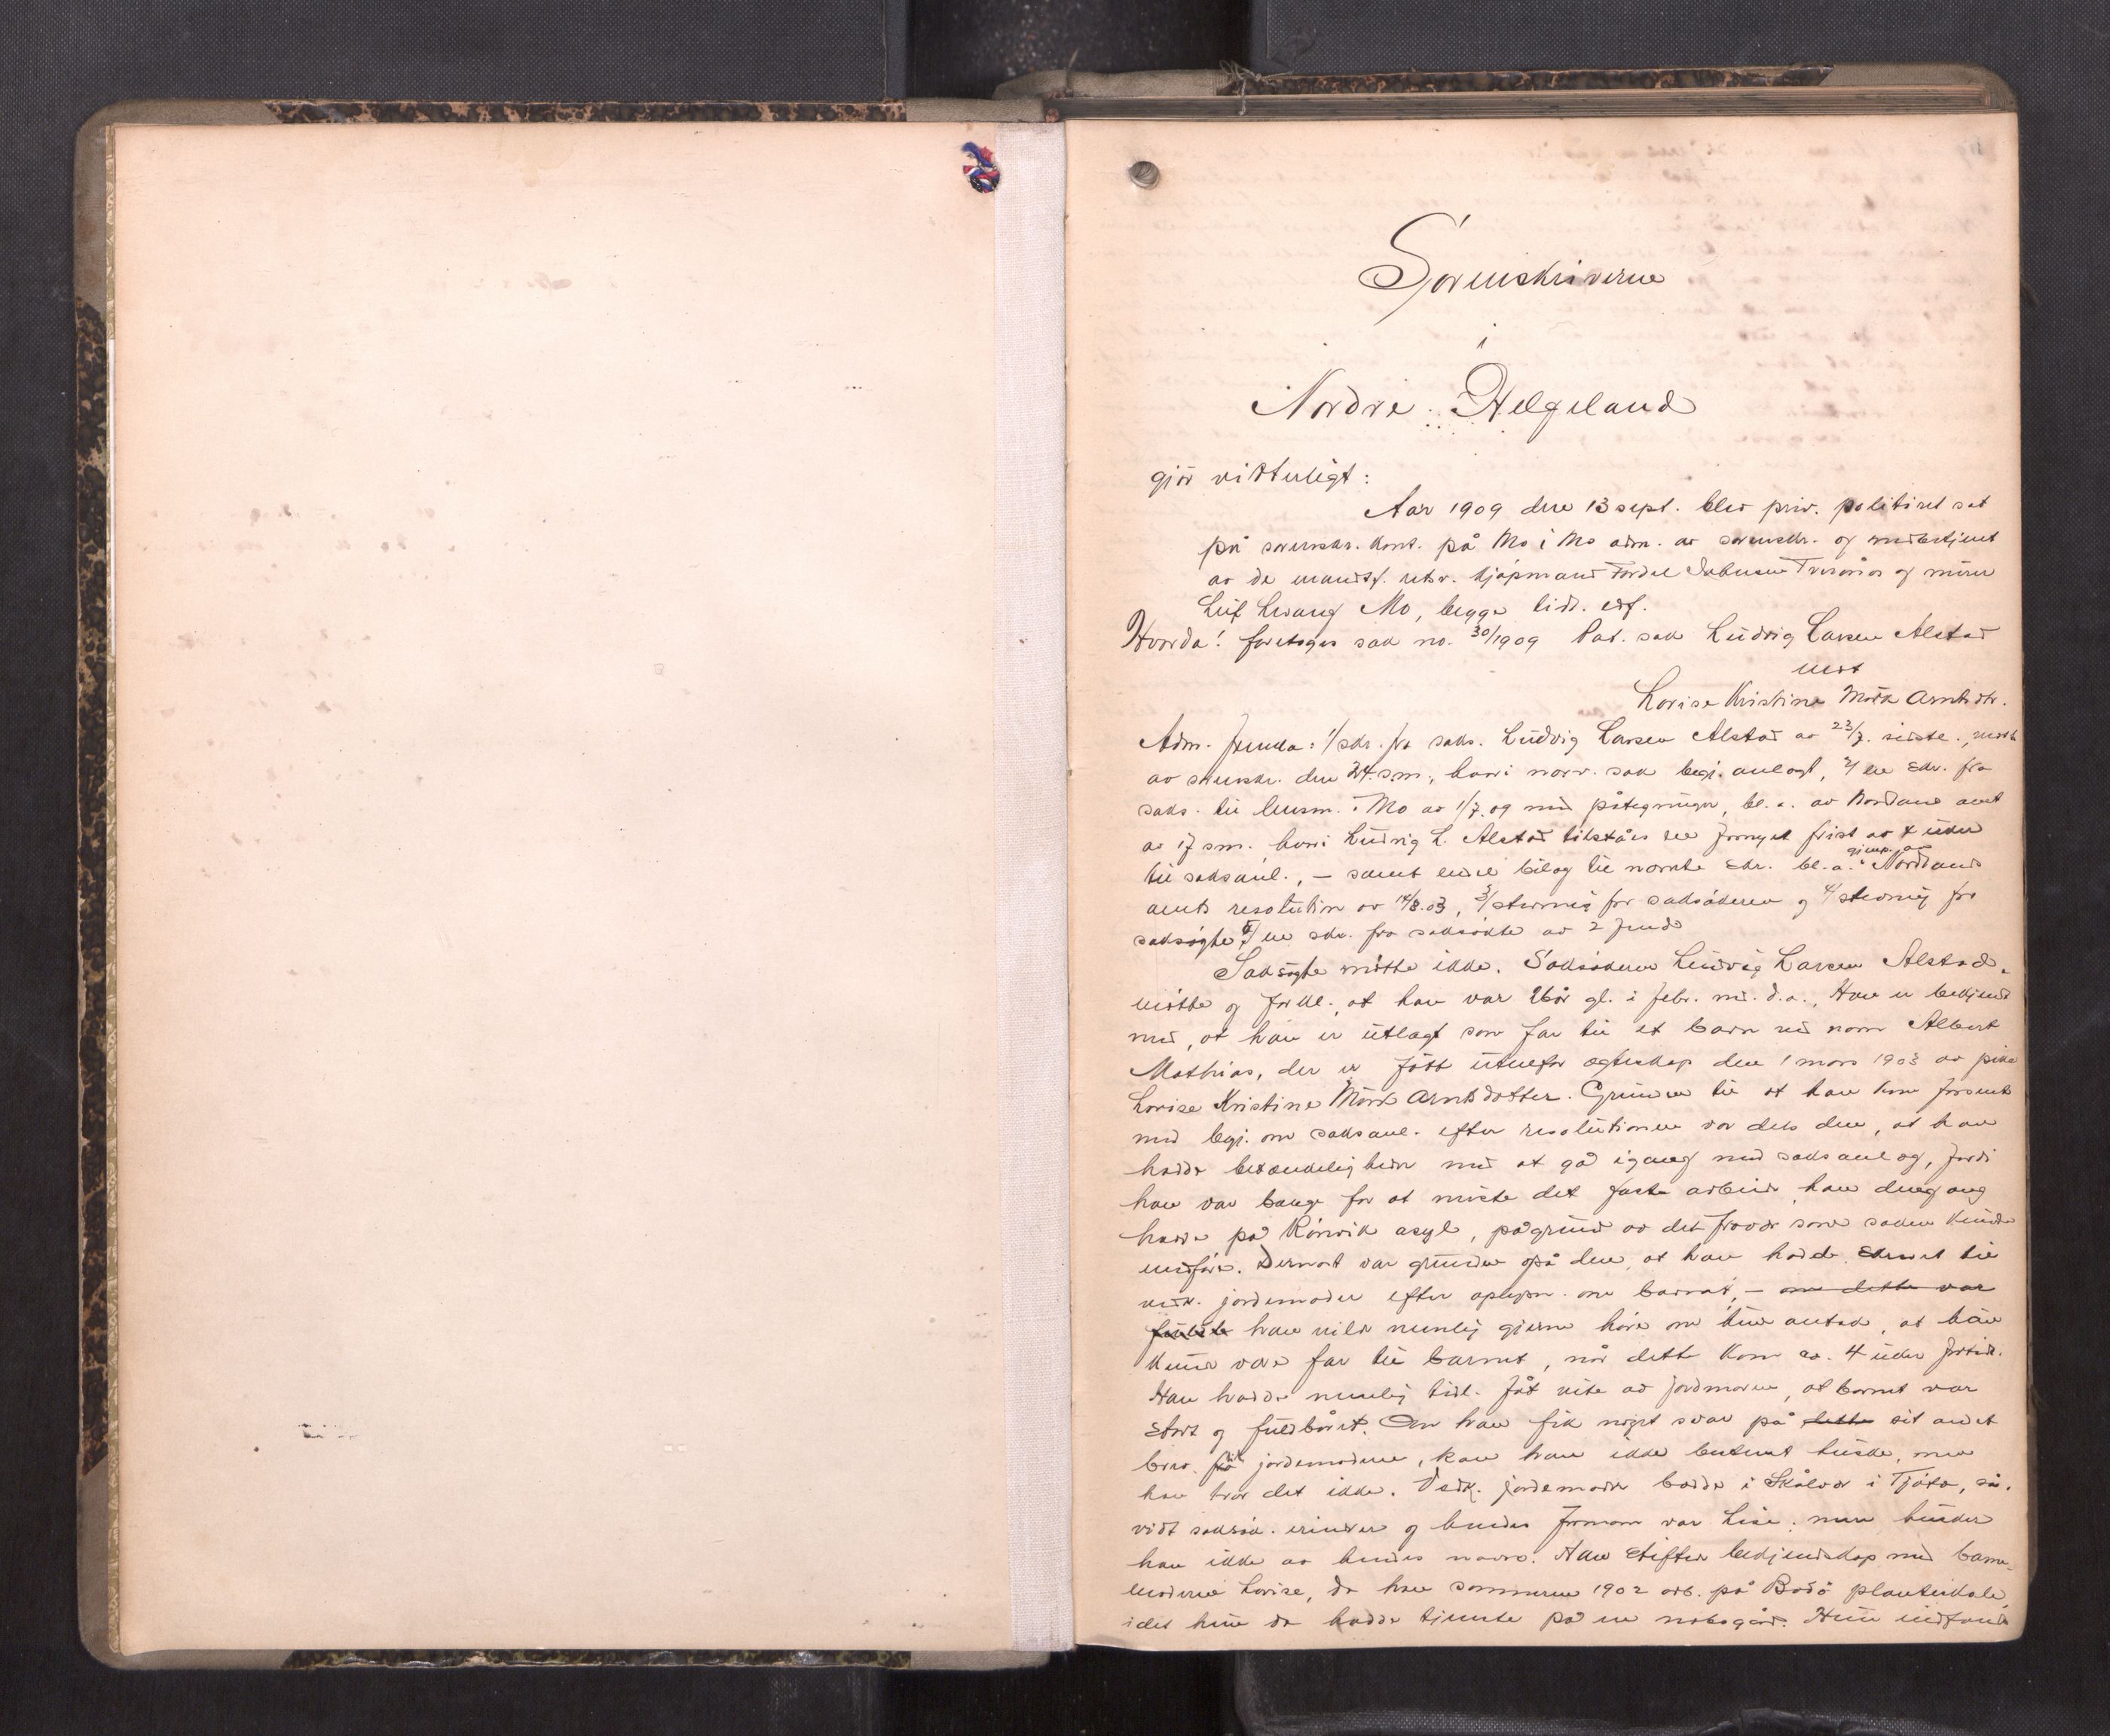 Sorenskriveren
i
Nordre Helgeland
gjør vitterligt:
Aar 1909 den 13 sept. blev priv. politiret sat
på sorenskr. kont. på Mo i Mo adm. av sorenskr. og medbetjent
av de mandtf. retsv. kjøpmand Jakobsen og murer
Leif Mo, begge tidl. edf.
Hvorda! foretoges sak no. 30/1909 Pat. sak Ludvig Larsen Alstad
mot
Lovise Kristine Mørk Arntsdtr.
Adm. freml.: 1/ skr. fra saks. Ludvig Larsen Alstad av 23/7. sidste.,
av sorenskr. den 24. s.m., hvori nærv. sak begj. anlagt, 2/ en skr. fra
saks. til lensm. i Mo av 1/7.09 med påtegninger, bl.a. av Nordland amt
av 17 s.m. hvori Ludvig L. Alstad tilståes en fornyet frist av 4 uker
til saksanl., – samt endel bilag til nævnte skr. bl.a. gjenp. av Nordland
amts resolution av 14/8.03, 3/ stevning for saksøkeren og 4/ stevning for
saksøgte 5/ en skr. fra saksøkte av 2
Saksøgte møtte ikke. Saksøkeren Ludvig Larsen Alstad
møtte og forkl., at han var år gl. i febr. md. d.a., Han er bekjendt
med, at han er utlagt som far til et barn ved navn Albert
Mathias, der er født utenfor ægteskap den 1 mars 1903 av pike
Lovise Kristine Mørk Arntsdotter. Grunden til at han kom forsent
med begj. om saksanl. efter resolutionen var dels den, at han
hadde betænkeligheder med at gå igang med saksanlæg, fordi
han var bange for at miste det faste arbeide han dengang
hadde på Rønvik asyl, på grund av det fravær som saken kunde
medføre. Dernæst var grunden også den, at han hadde skrevet til
vedk. jordemoder efter oplysn. om barnet, – om dette var
han vilde nemlig gjerne høre om hun antok, at han
kunde være far til barnet, når dette kom ca. 4 uker fortidl.
Han hadde nemlig tidl. fåt vite av jordmoren, at barnet var
stort og fuldbåret. Om han fik noget svar på dette sit andet
brev til jordemoderen, kan han ikke bestemt huske, men
han tror det ikke. Vedk. jordemoder bodde i Skålvær i Tjøtta, så-
vidt saksøk. erindrer og hendes fornavn var Lise; men husker
han ikke av hendes navn. Han stiftet bekjendtskap med barne-
moderen Lovise, da han sommeren 1902 arb. på Bodø planteskole,
idet hun da hadde tjeneste på en nabogård. Hun indfandt